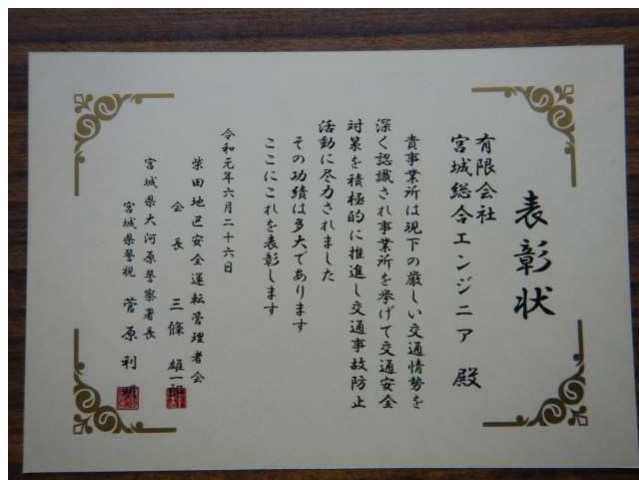 表彰状
有限会社
宮城総合エンジニア 殿
貴事業所は現下の厳しい交通情勢を
深く認識され事業所を挙げて交通安全
対策を積極的に推進し交通事故防止
活動に尽力されました
その功績は多大であります
ここにこれを表彰します
令和元年六月二十六日
柴田地区安全運転管理者会
会長 三條 雄一郎
宮城県大河原警察署長
宮城県警視 菅原利明